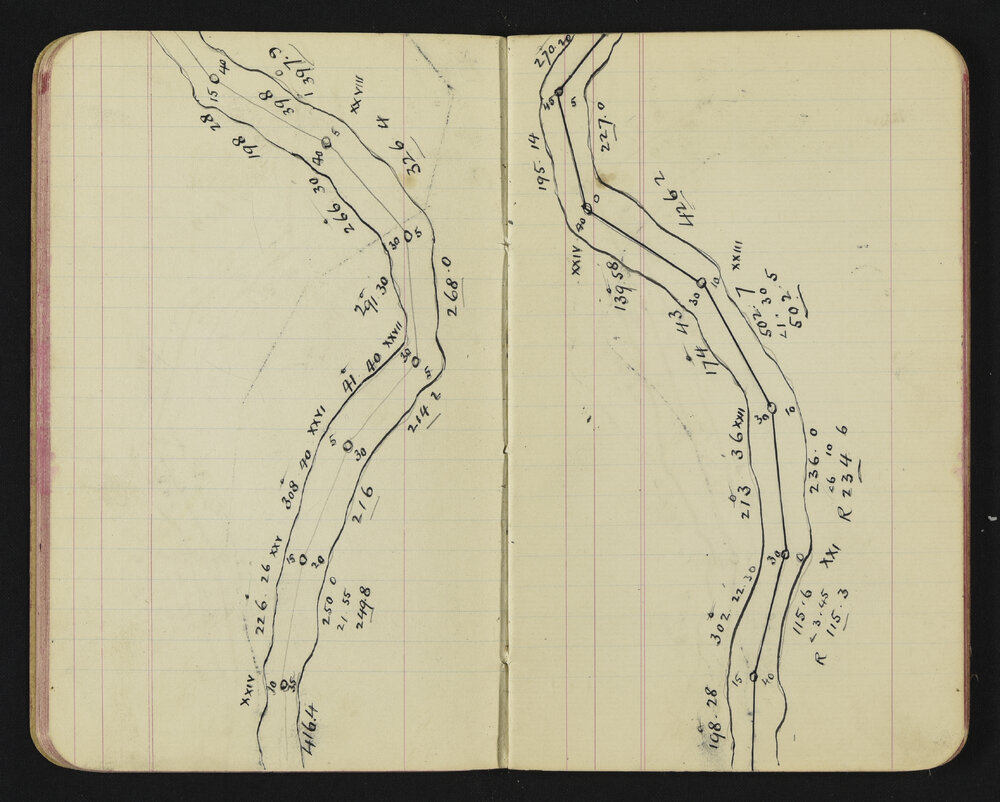 40
15
1397.9
398
XXVIII
28
198
5
40
326 4
266° 30
30
5
291° 30
268.0
XXVII
30
5
41° 40
214 2
XXVI
5
30
308° 40
216
XXV
5
20
226° 26
250 0
21.55
249.8
XXIV
10
35
416.4
270.20
30
5
227.0
195. 14
40
0
426 2
XXIV
139° 58
XXIII
30
10
502. 7
21. 30
502.5
174° 43
30
10
XXII
213° 36
236. 0
<6 10
R 234 6
30
0
XXI
302° 22.30
115.6
< 3.45
R 115.3
15
40
198.28